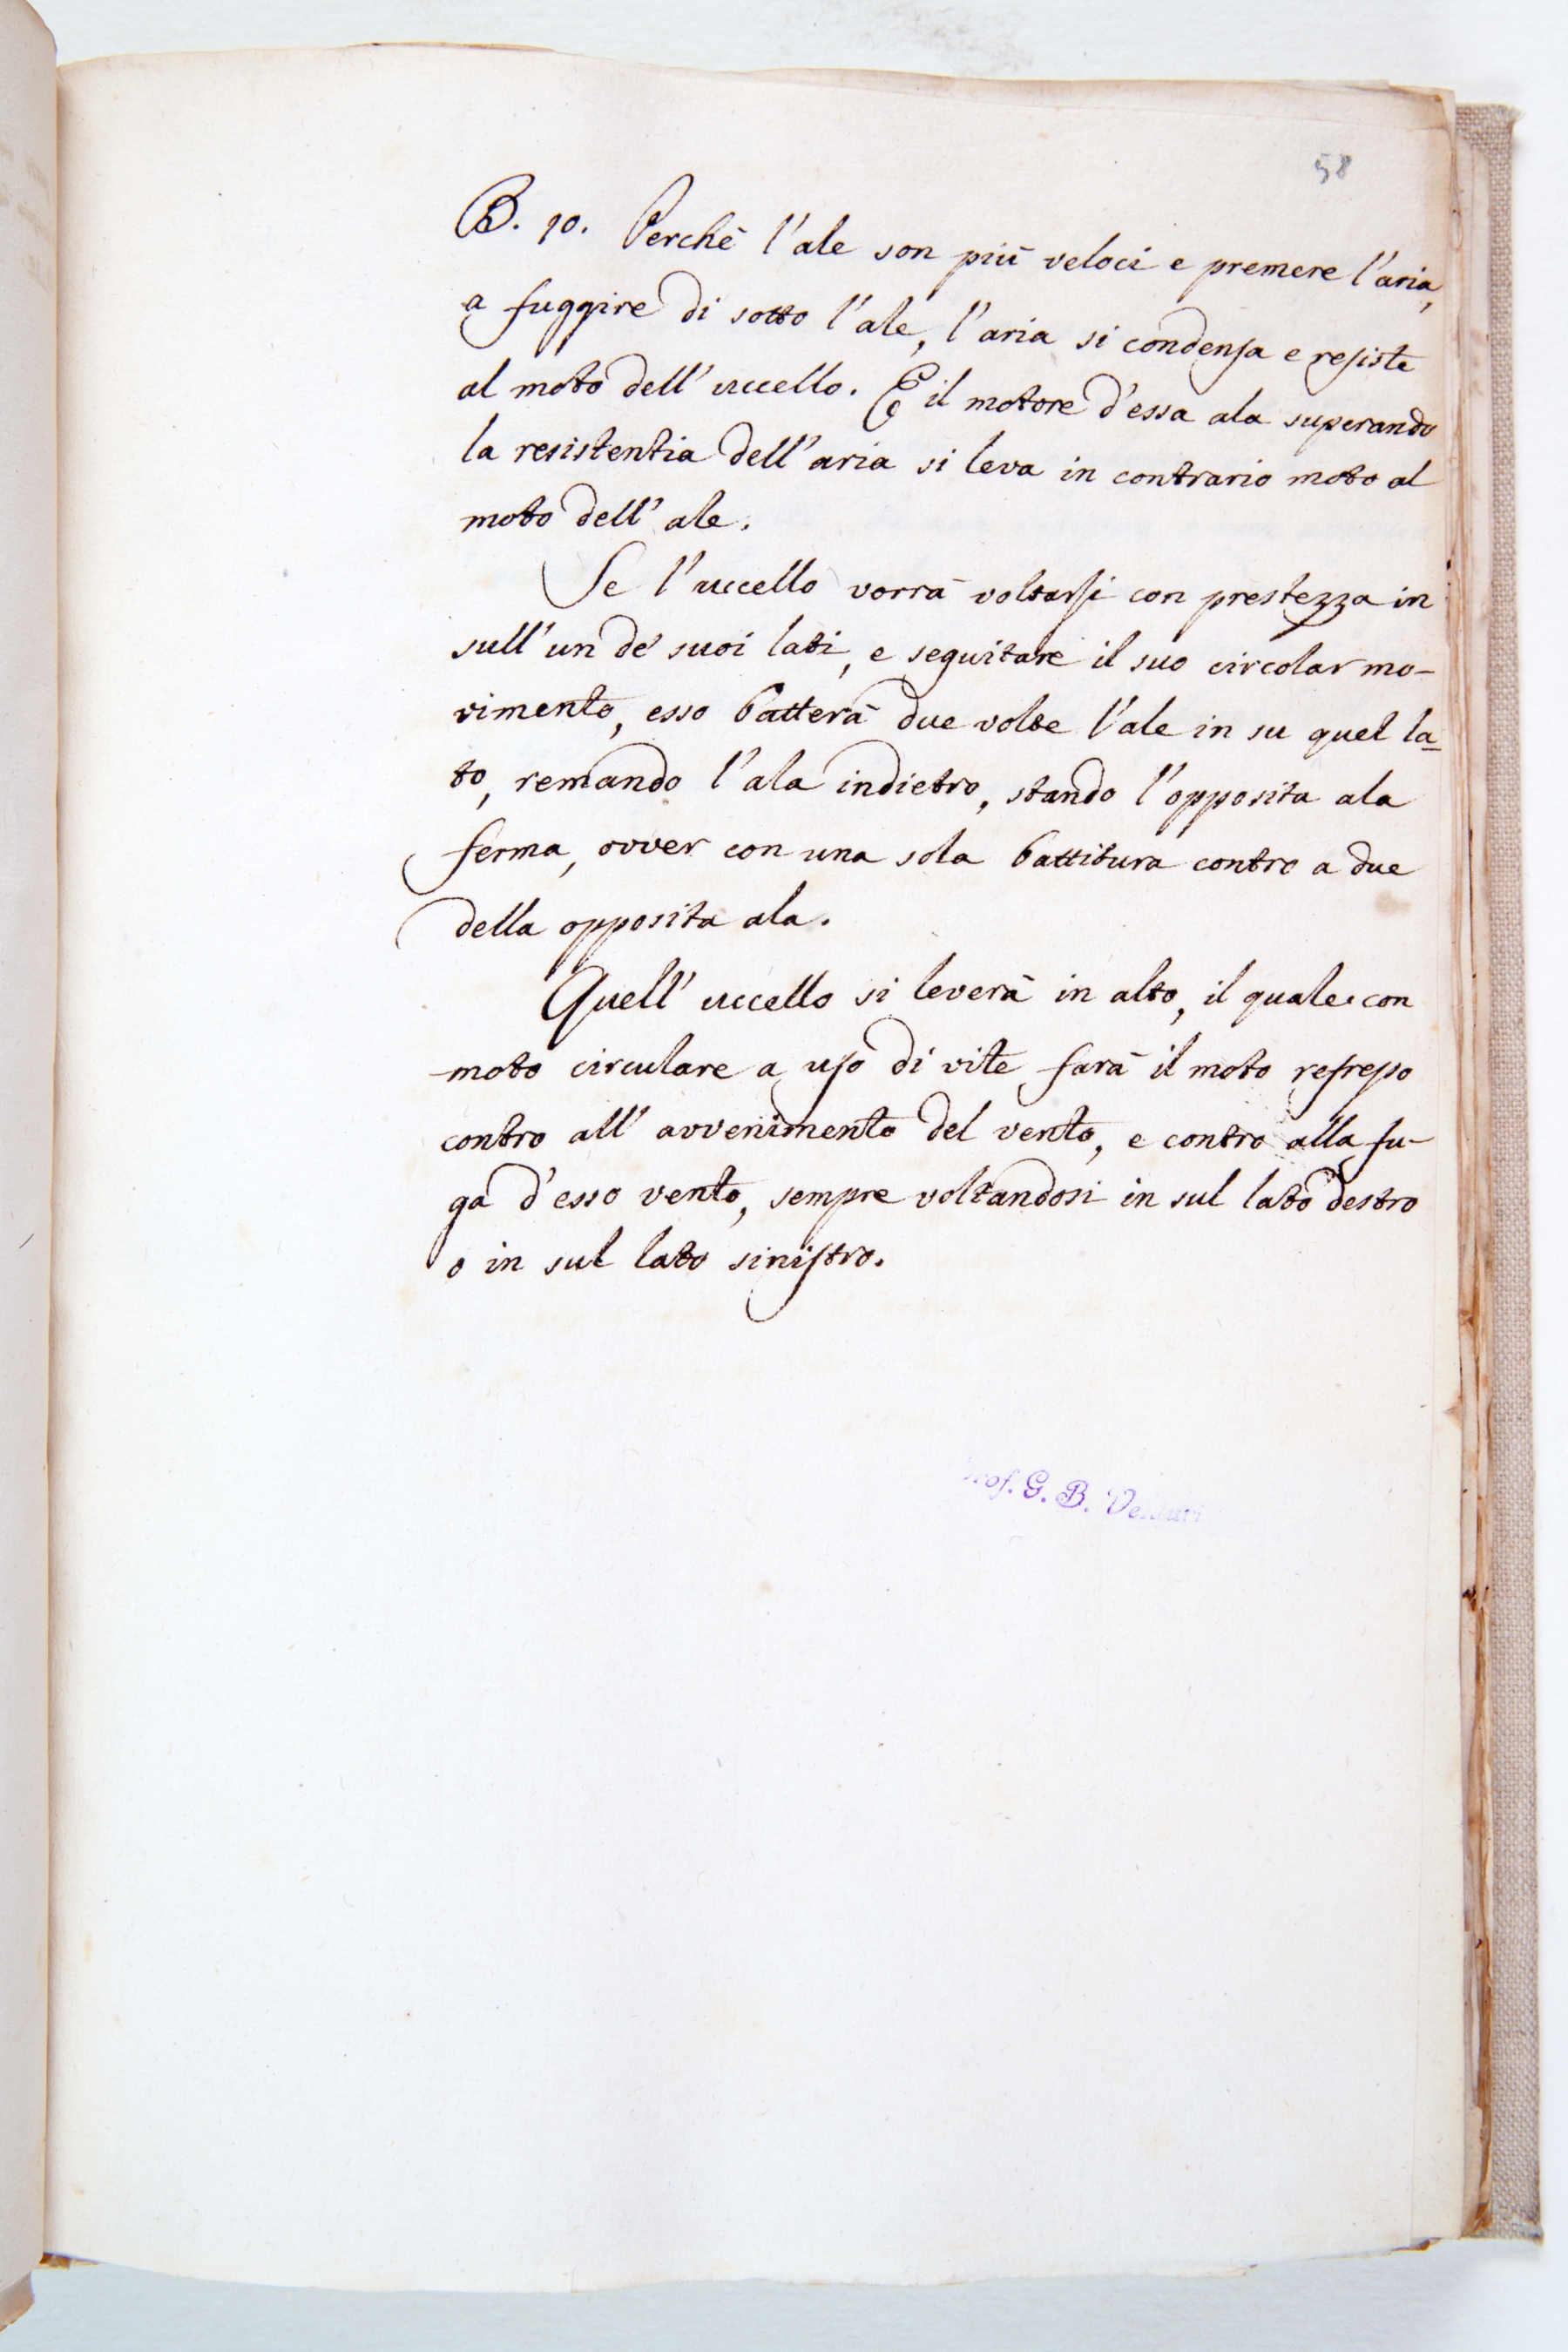 58
B. 10. Perchè l'ale son più veloci e premere l'aria,
a fuggire di sotto l'ale, l'aria si condensa e resiste
al moto dell'uccello. E il motore d'essa ala superando
la resistentia dell'aria si leva in contrario moto al
moto dell'ale.
Se l'uccello vorrà voltarsi con prestezza in
sull'un de' suoi lati, e seguitare il suo circolar mo-
vimento, esso batterà due volte l'ale in su quel la-
to, remando l'ala indietro, stando l'opposita ala
ferma, ovver con una sola battitura contro a due
della opposita ala.
Quell'uccello si leverà in alto, il quale con
moto circulare a uso di vite farà il moto refresso
contro all'avvenimento del vento, e contro alla fu-
ga d'esso vento, sempre voltandosi in sul lato destro
o in sul lato sinistro.
Prof. G. B. Venturi